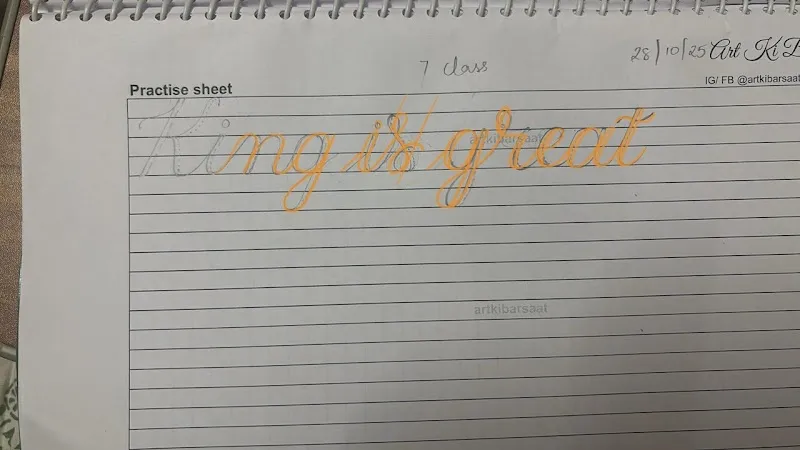 7 class
28/10/25 Art Ki B
IG/ FB @artkibarsaat
Practise sheet
King is great
artkibarsaat
artkibarsaat